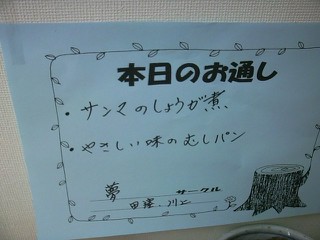 本日のお通し
・サンマのしょうが煮
・やさしい味のむしパン
夢 サークル
田窪、川上